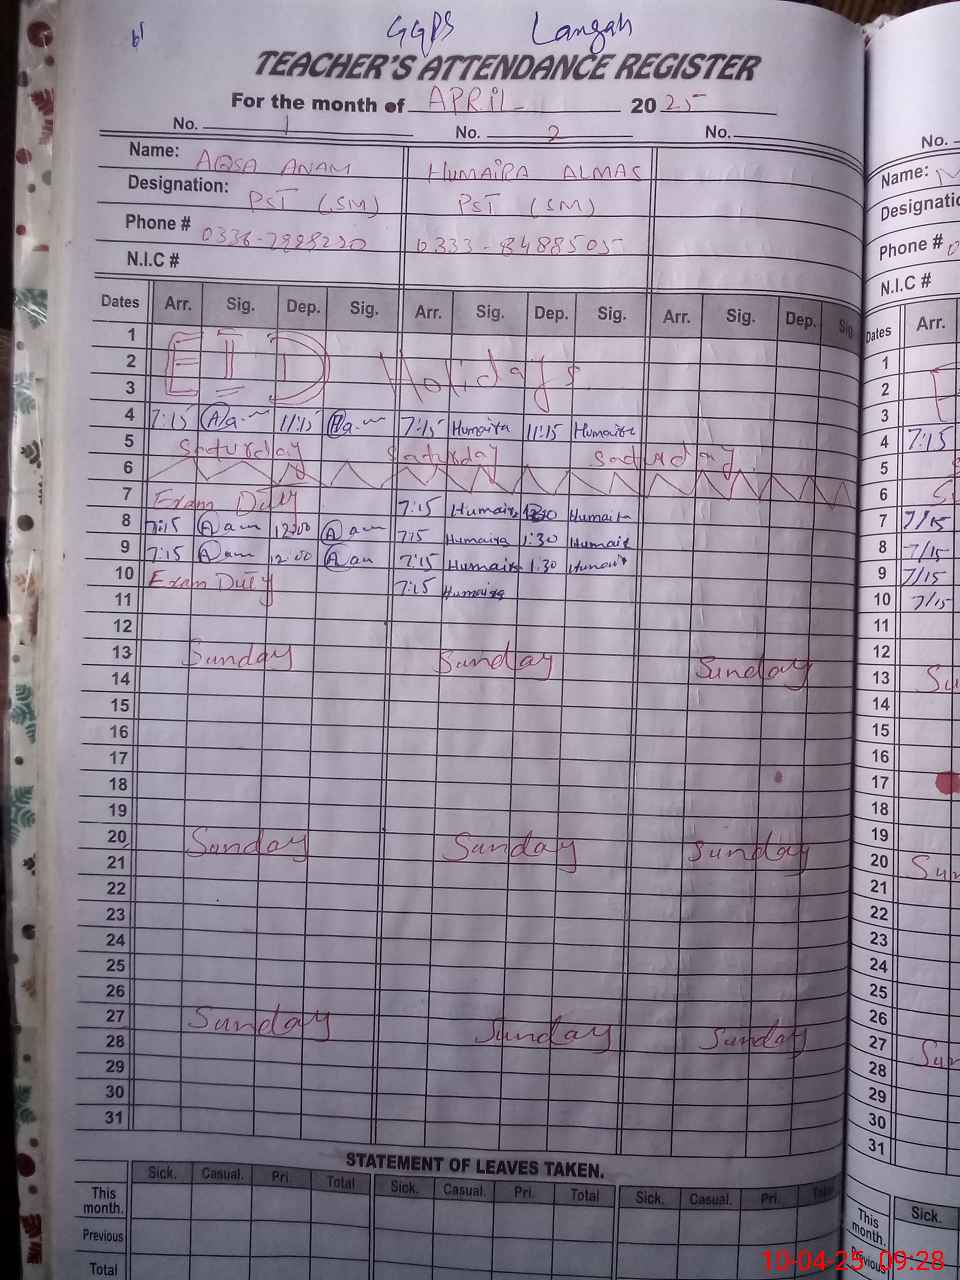 GGPS Langah
TEACHER'S ATTENDANCE REGISTER
For the month of APRIL 2025
No. 1 No. 2 No.
Name: AQSA ANAM HUMAIRA ALMAS
Designation: PST (SM) PST (SM)
Phone # 0333-8488505
N.I.C #
Dates Arr. Sig. Dep. Sig. Arr. Sig. Dep. Sig. Arr. Sig. Dep. Sig
1
2 EID Holidays
3
4 7:15 11:15 7:15 Humaira 11:15 Humaira
5 Saturday Saturday Saturday
6
7 Exam Duty 7:15 Humaira Humaira
8 7:15 12:00 7:15 Humaira 1:30 Humaira
9 7:15 12:00 7:15 Humaira 1:30 Humaira
10 Exam Duty 7:15 Humaira
11
12
13 Sunday Sunday Sunday
14
15
16
17
18
19
20 Sunday Sunday Sunday
21
22
23
24
25
26
27 Sunday Sunday Sunday
28
29
30
31
STATEMENT OF LEAVES TAKEN.
Sick. Casual. Pri. Total Sick. Casual. Pri. Total Sick. Casual. Pri. Total
This month.
Previous
Total
No.
Name:
Designatio
Phone #
N.I.C #
Dates Arr.
1
2
3
4 7:15
5
6
7 7/15
8 7/15
9 7/15
10 7/15
11
12
13 Su
14
15
16
17
18
19
20 Sun
21
22
23
24
25
26
27 Sun
28
29
30
31
Sick.
This month.
Previous
10-04-25 09:28